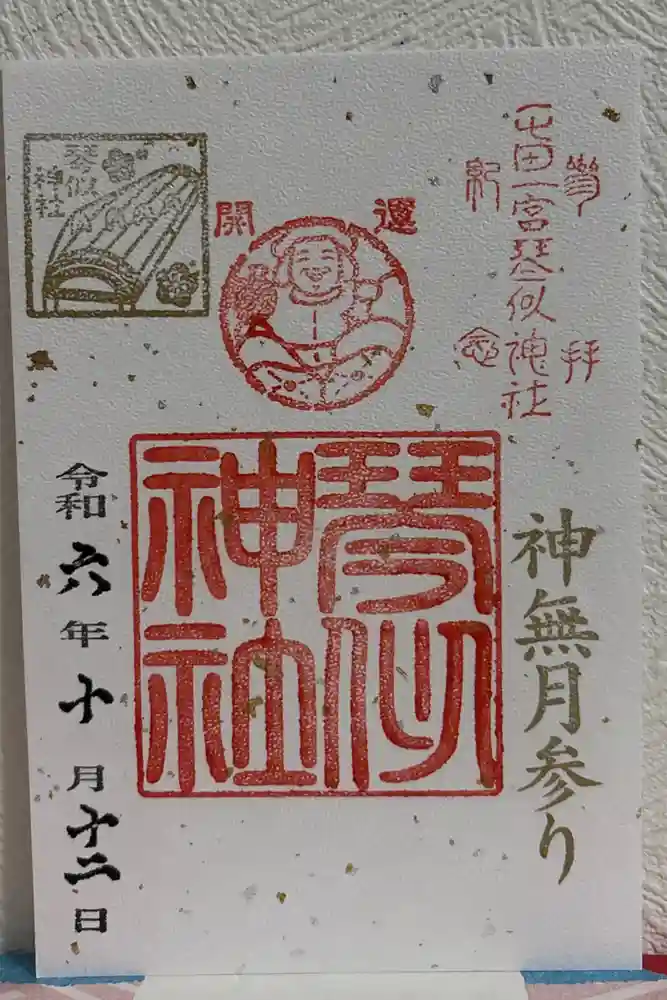 參拝
屯田一宮琴似神社
紀念
開運
琴似
神社
神無月参り
琴似
神社
令和六年十月十二日